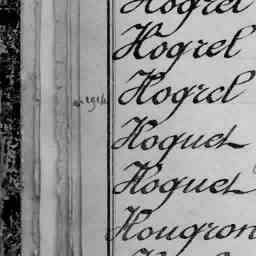 Hogrel
Hogrel
Hogrel
Hoguet
Hoguet
Hougron